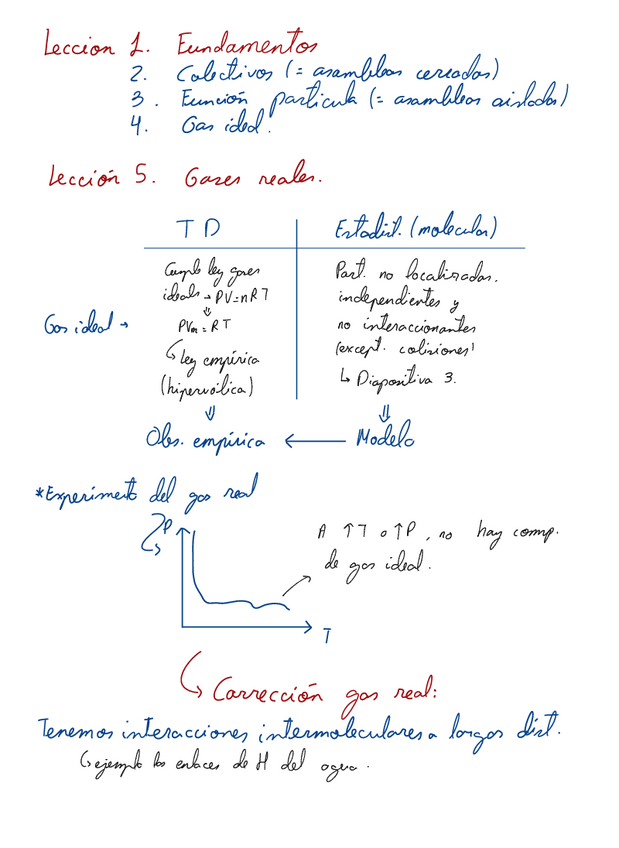 Leccion 1. Fundamentos
2. Colectivos (= asambleas cerradas)
3. Función particula (= asambleas aisladas)
4. Gas ideal.
Lección 5. Gases reales.
TD
Estadist. (molecular)
Gas ideal →
Cumple ley gases
ideales → PV=nRT
⇓
PVm = RT
↳ Ley empírica
(hiperbólica)
⇓
Obs. empírica
Part. no localizadas.
independientes y
no interaccionantes
(except. colisiones)
↳ Diapositiva 3.
⇓
← Modelo
*Experimento del gas real
P
T
A ↑T o ↑P, no hay comp.
de gas ideal.
↳ Corrección gas real:
Tenemos interacciones intermoleculares a largas dist.
↳ ejemplo los enlaces de H del agua.